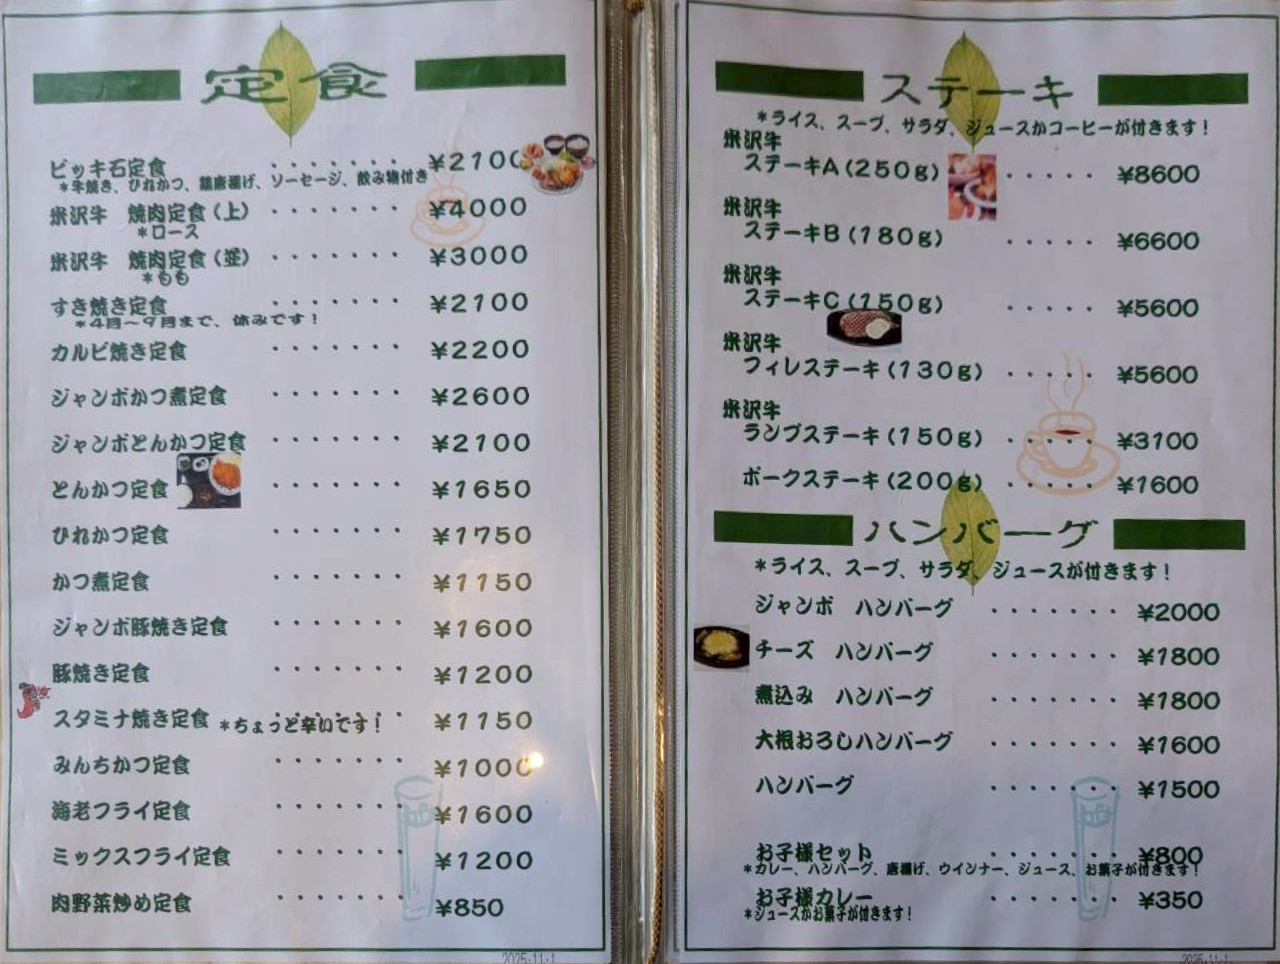 定食
ビッキ石定食 ・・・・・・・ ¥2100
*牛焼き、ひれかつ、鶏唐揚げ、ソーセージ、飲み物付き
米沢牛 焼肉定食(上) ・・・・・・・ ¥4000
*ロース
米沢牛 焼肉定食(並) ・・・・・・・ ¥3000
*もも
すき焼き定食 ・・・・・・・ ¥2100
*4月～9月まで、休みです!
カルビ焼き定食 ・・・・・・・ ¥2200
ジャンボかつ煮定食 ・・・・・・・ ¥2600
ジャンボとんかつ定食 ・・・・・・・ ¥2100
とんかつ定食 ・・・・・・・ ¥1650
ひれかつ定食 ・・・・・・・ ¥1750
かつ煮定食 ・・・・・・・ ¥1150
ジャンボ豚焼き定食 ・・・・・・・ ¥1600
豚焼き定食 ・・・・・・・ ¥1200
スタミナ焼き定食 *ちょっと辛いです! ・・・・・・・ ¥1150
みんちかつ定食 ・・・・・・・ ¥1000
海老フライ定食 ・・・・・・・ ¥1600
ミックスフライ定食 ・・・・・・・ ¥1200
肉野菜炒め定食 ・・・・・・・ ¥850
2025.11.1
ステーキ
*ライス、スープ、サラダ、ジュースかコーヒーが付きます!
米沢牛
ステーキA(250g) ・・・・・ ¥8600
米沢牛
ステーキB(180g) ・・・・・ ¥6600
米沢牛
ステーキC(150g) ・・・・・ ¥5600
米沢牛
フィレステーキ(130g) ・・・・・ ¥5600
米沢牛
ランプステーキ(150g) ・・・・・ ¥3100
ポークステーキ(200g) ・・・・・ ¥1600
ハンバーグ
*ライス、スープ、サラダ、ジュースが付きます!
ジャンボ ハンバーグ ・・・・・・・ ¥2000
チーズ ハンバーグ ・・・・・・・ ¥1800
煮込み ハンバーグ ・・・・・・・ ¥1800
大根おろしハンバーグ ・・・・・・・ ¥1600
ハンバーグ ・・・・・・・ ¥1500
お子様セット ・・・・・・・ ¥800
*カレー、ハンバーグ、唐揚げ、ウインナー、ジュース、お菓子が付きます!
お子様カレー ・・・・・・・ ¥350
*ジュースかお菓子が付きます!
2025.11.1